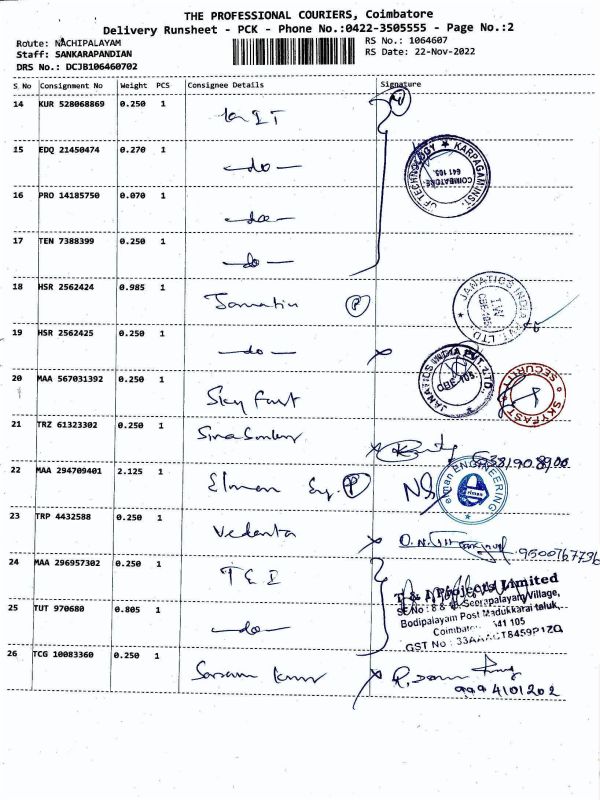 THE PROFESSIONAL COURIERS, Coimbatore
Delivery Runsheet - PCK - Phone No.:0422-3505555 - Page No.:2
Route: NACHIPALAYAM
Staff: SANKARAPANDIAN
DRS No.: DCJB106460702
RS No.: 1064607
RS Date: 22-Nov-2022
S No Consignment No Weight PCS Consignee Details Signature
14 KUR 528068869 0.250 1
15 EDQ 21450474 0.270 1 -do-
KARPAGAM INST. OF TECHNOLOGY
COIMBATORE.
641 105.
16 PRO 14185750 0.070 1 -do-
17 TEN 7388399 0.250 1 -do-
18 HSR 2562424 0.985 1 P
JANATICS INDIA PVT. LTD.
19 HSR 2562425 0.250 1 -do-
JANATICS INDIA PVT LTD.
CBE-105.
20 MAA 567031392 0.250 1 Sky Fast
SKYFAST SECURITY
21 TRZ 61323302 0.250 1
22 MAA 294709401 2.125 1 Elman Eng. P
elman ENGINEERING
23 TRP 4432588 0.250 1 Vedanta
24 MAA 296957302 0.250 1 T & I
T & I Projects Limited
Seerapalayam Village,
Bodipalayam Post Madukkarai taluk,
25 TUT 970680 0.805 1 -do-
641 105
GST No : 33AAACT8459P1ZQ
26 TCG 10083360 0.250 1
9994101202